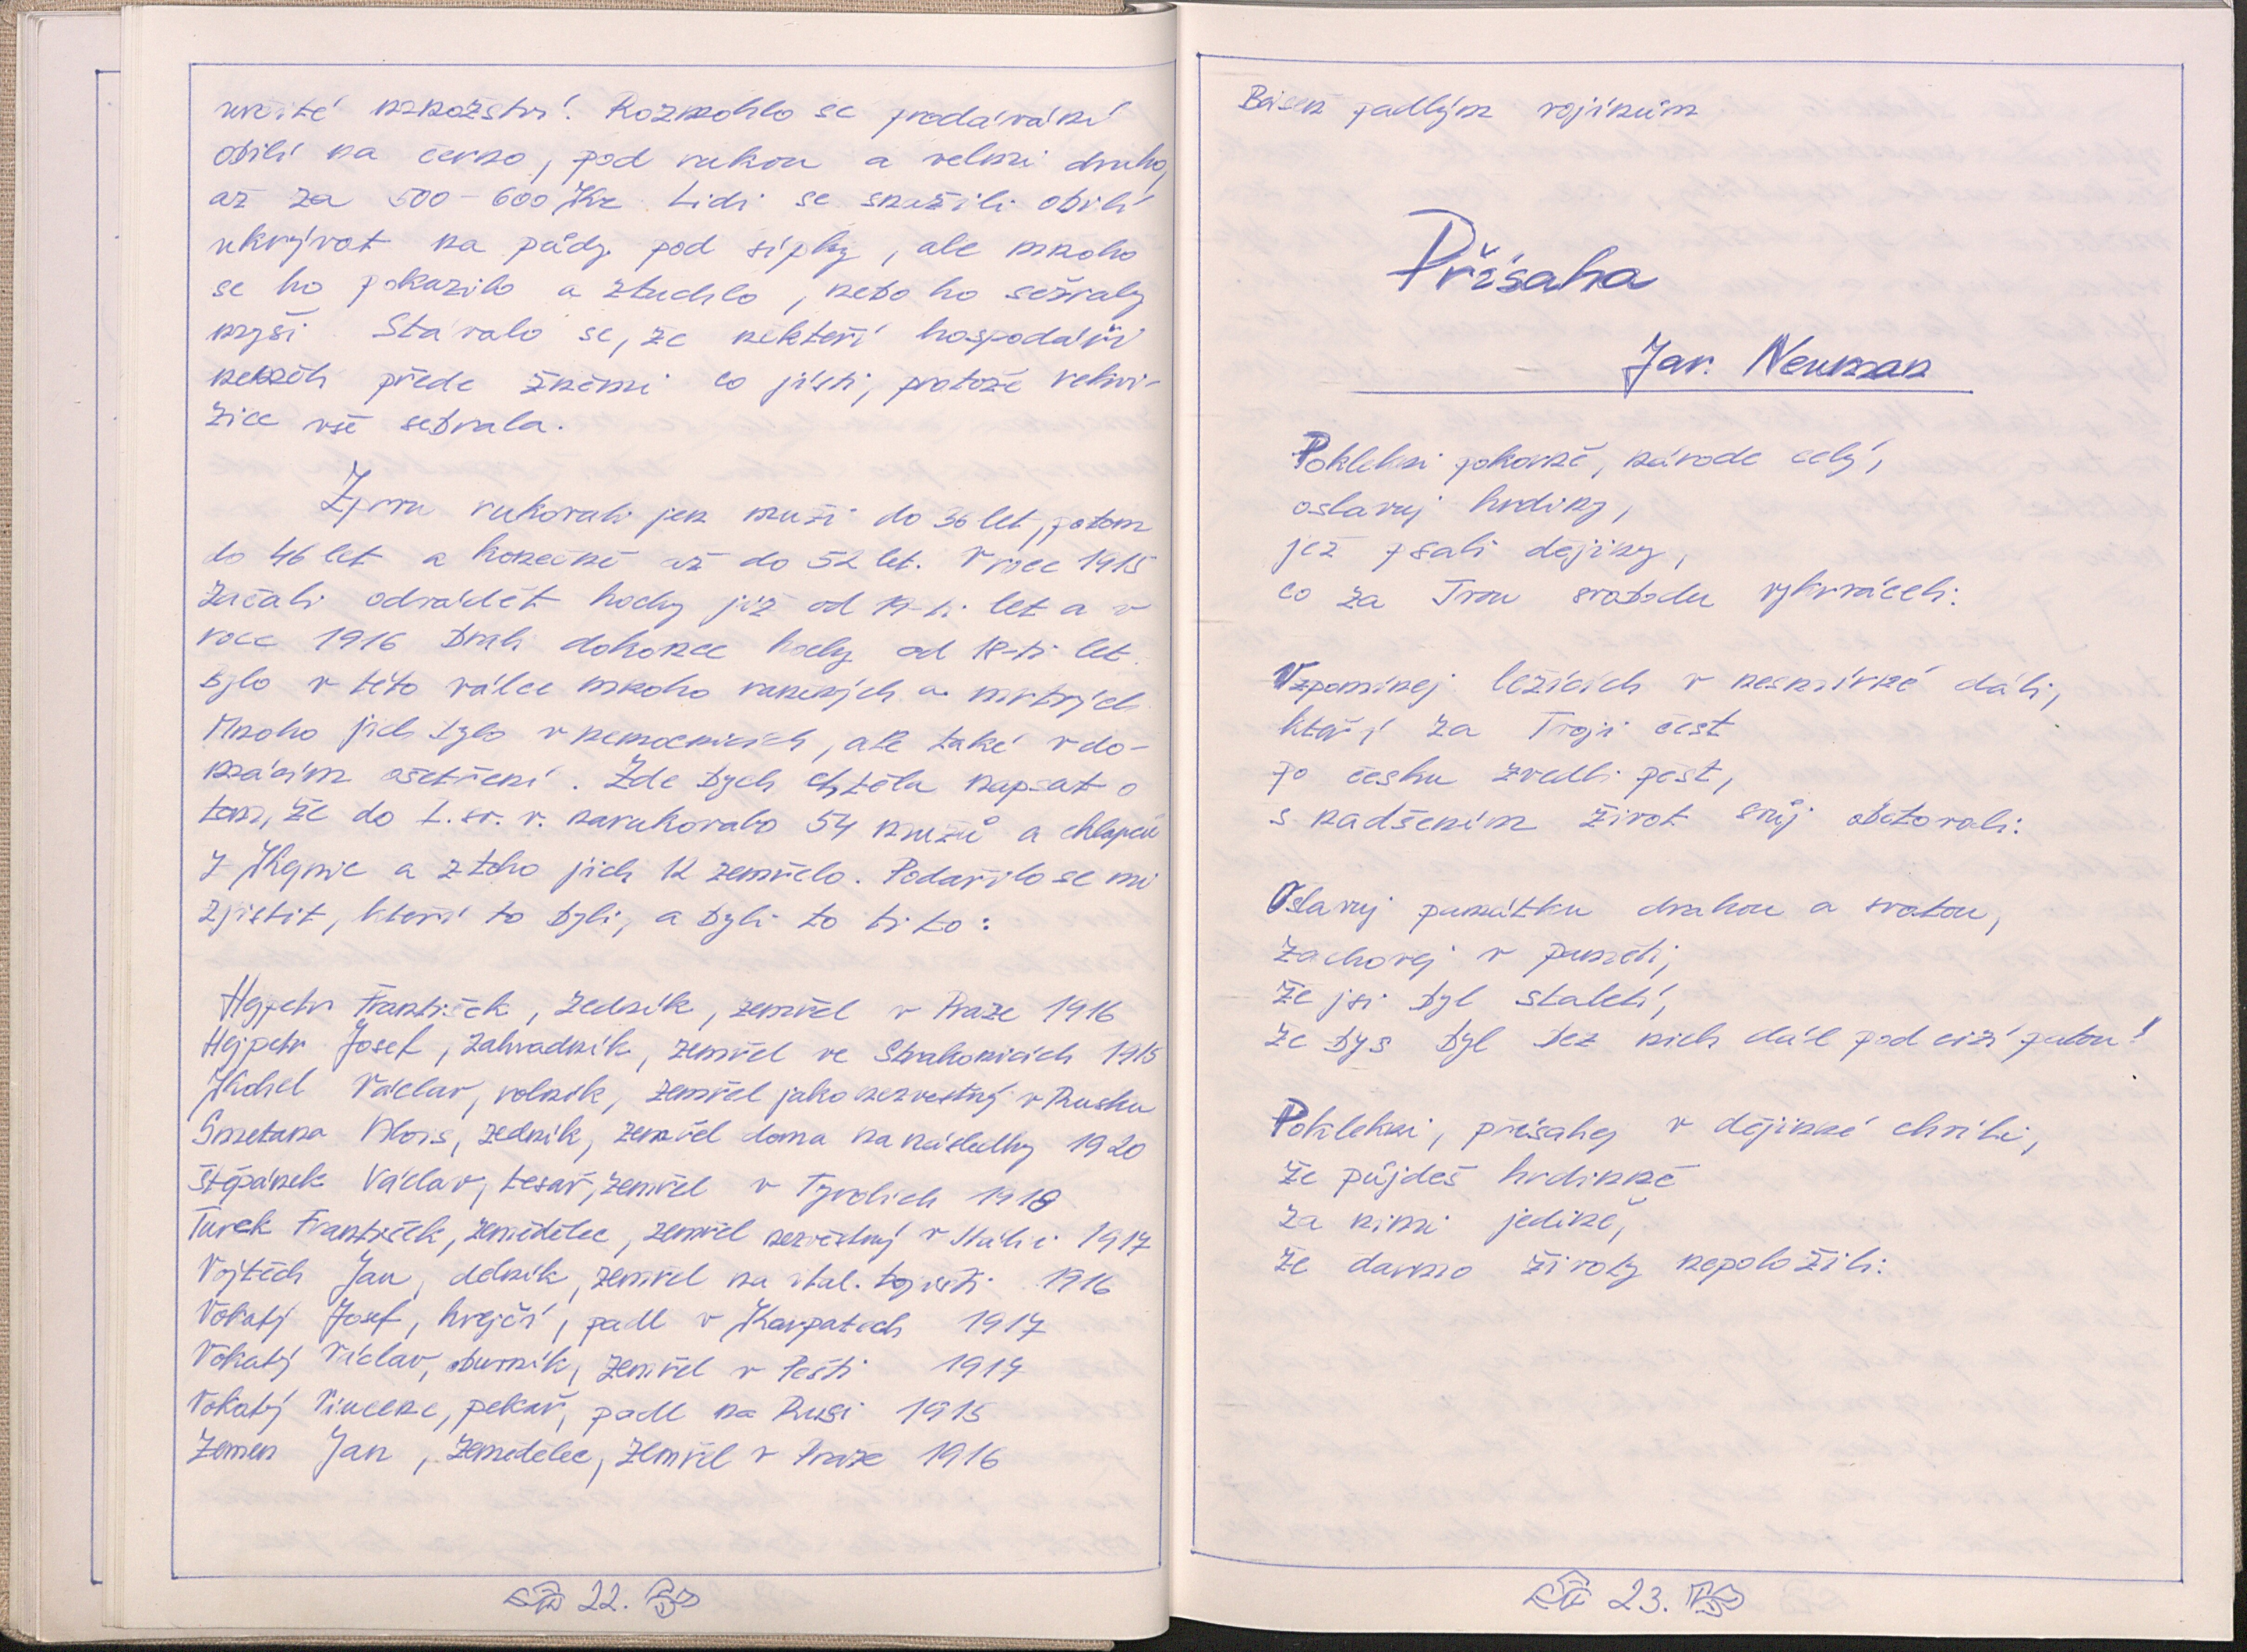 určité množství. Rozmohlo se prodávání
obilí na černo, pod rukou a velmi draho,
až za 500-600 Kč. Lidi se snažili obilí
ukrývat na půdy pod šípky, ale mnoho
se ho pokazilo a ztuchlo, nebo ho sežraly
myši. Stávalo se, že někteří hospodáři
neměli přede žněmi co jísti, protože rekvi-
zice vše sebrala.
Zprvu rukovali jen muži do 36 let, potom
do 46 let a konečně až do 52 let. V roce 1915
začali odvádět hochy již od 19-ti let a v
roce 1916 brali dokonce hochy od 18-ti let.
Bylo v této válce mnoho raněných a mrtvých.
Mnoho jich bylo v nemocnicích, ale také v do-
mácím ošetření. Zde bych chtěla napsat o
tom, že do I. sv. v. narukovalo 54 mužů a chlapců
z Kypnic a z toho jich 12 zemřelo. Podařilo se mi
zjistit, kteří to byli, a byli to tito:
Hejpetr František, zedník, zemřel v Praze 1916
Hejpetr Josef, zahradník, zemřel ve Strakonicích 1915
Václav, rolník, zemřel jako nezvěstný v Rusku
Smetana Alois, zedník, zemřel doma na následky 1920
Štěpánek Václav, tesař, zemřel v Tyrolích 1918
Turek František, zemědělec, zemřel nezvěstný v Itálii 1917
Vojtěch Jan, dělník, zemřel na ital. bojišti 1916
Vokatý Josef, krejčí, padl v Karpatech 1917
Vokatý Václav, zemřel v Pešti 1914
Vokatý Vincenc, pekař, padl na Rusi 1915
Zeman Jan, zemědělec, zemřel v Praze 1916
22.
Báseň padlým vojínům
Přísaha
Jar. Neuman
Poklekni pokorně, národe celý,
oslavuj hrdiny,
jež psali dějiny,
co za Tvou svobodu vykrváceli.
Vzpomínej ležících v nesmírné dáli,
kteří za Tvoji čest
po česku zvedli pěst,
s nadšením život svůj obětovali.
Oslavuj památku drahou a svatou,
zachovej v paměti,
že jsi byl staletí,
že bys byl bez nich dál pod cizí patou!
Poklekni, přísahej v dějinné chvíli,
že půjdeš hrdinně
za nimi jedině,
že darmo životy nepoložili.
23.